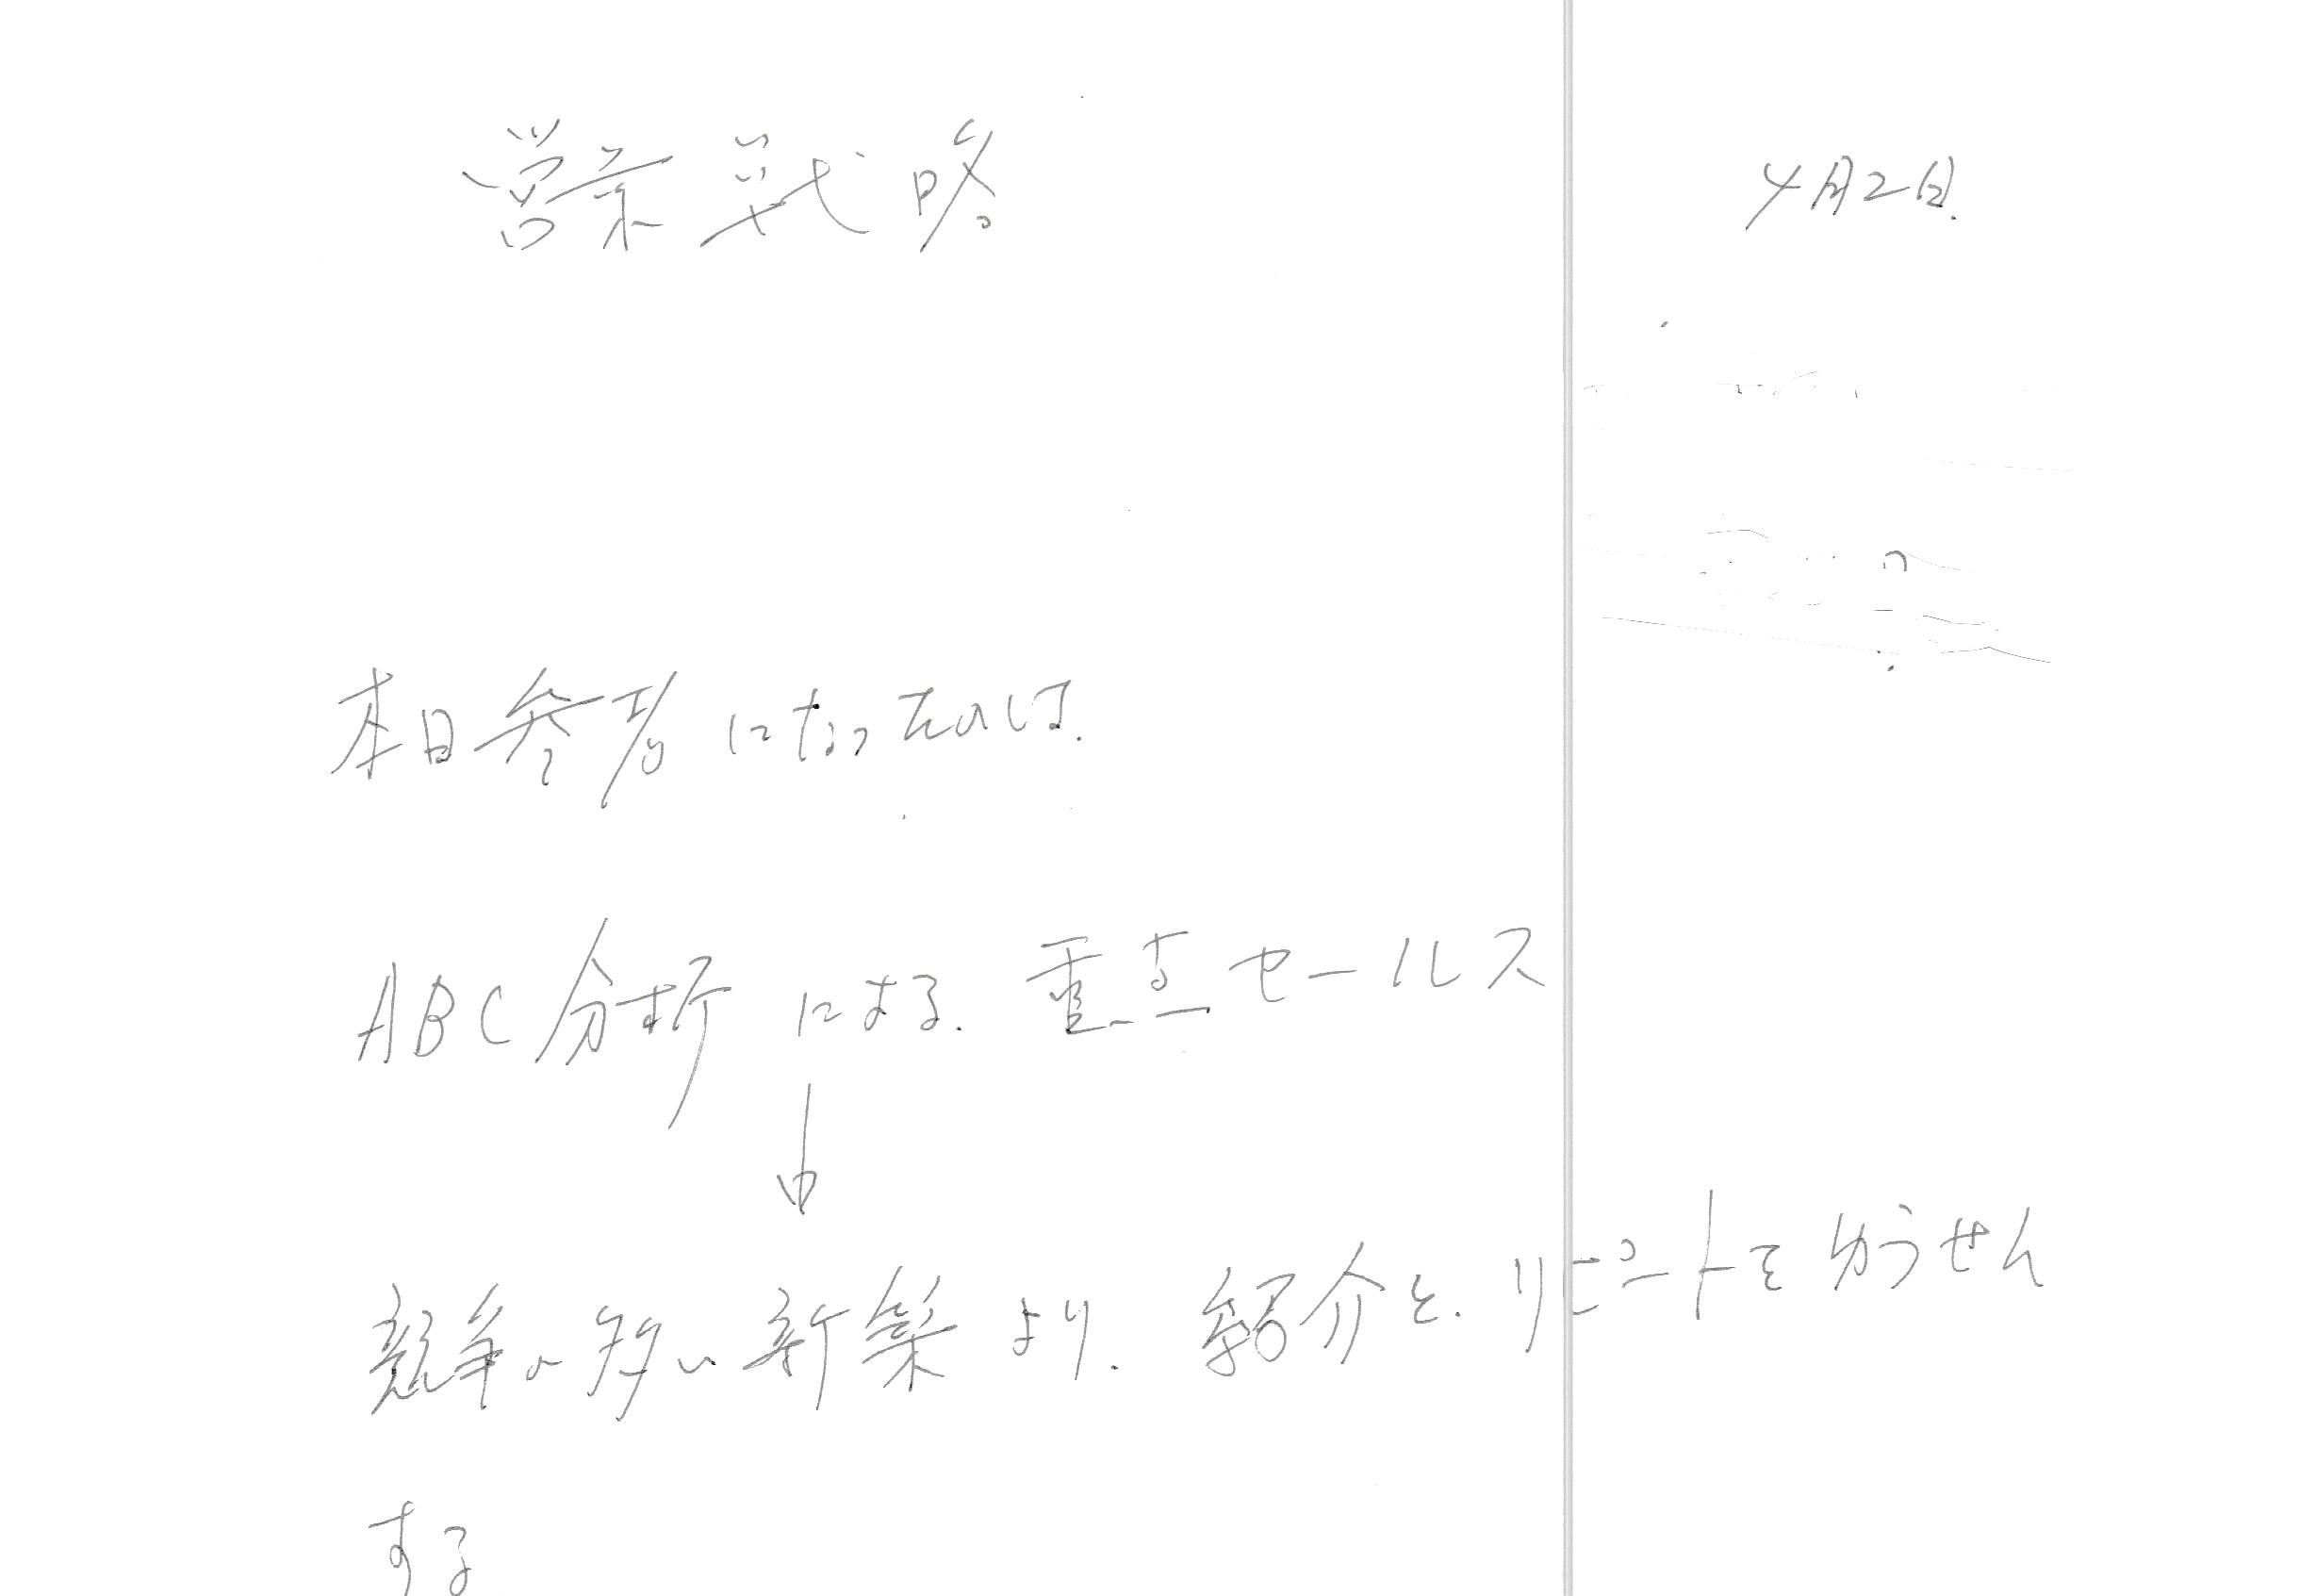 営業戦略 4月2日.
本日参考になったのは.
ABC分析による.重点セールス
↓
競争の多い新築より.紹介と.リピートをゆうせん
する